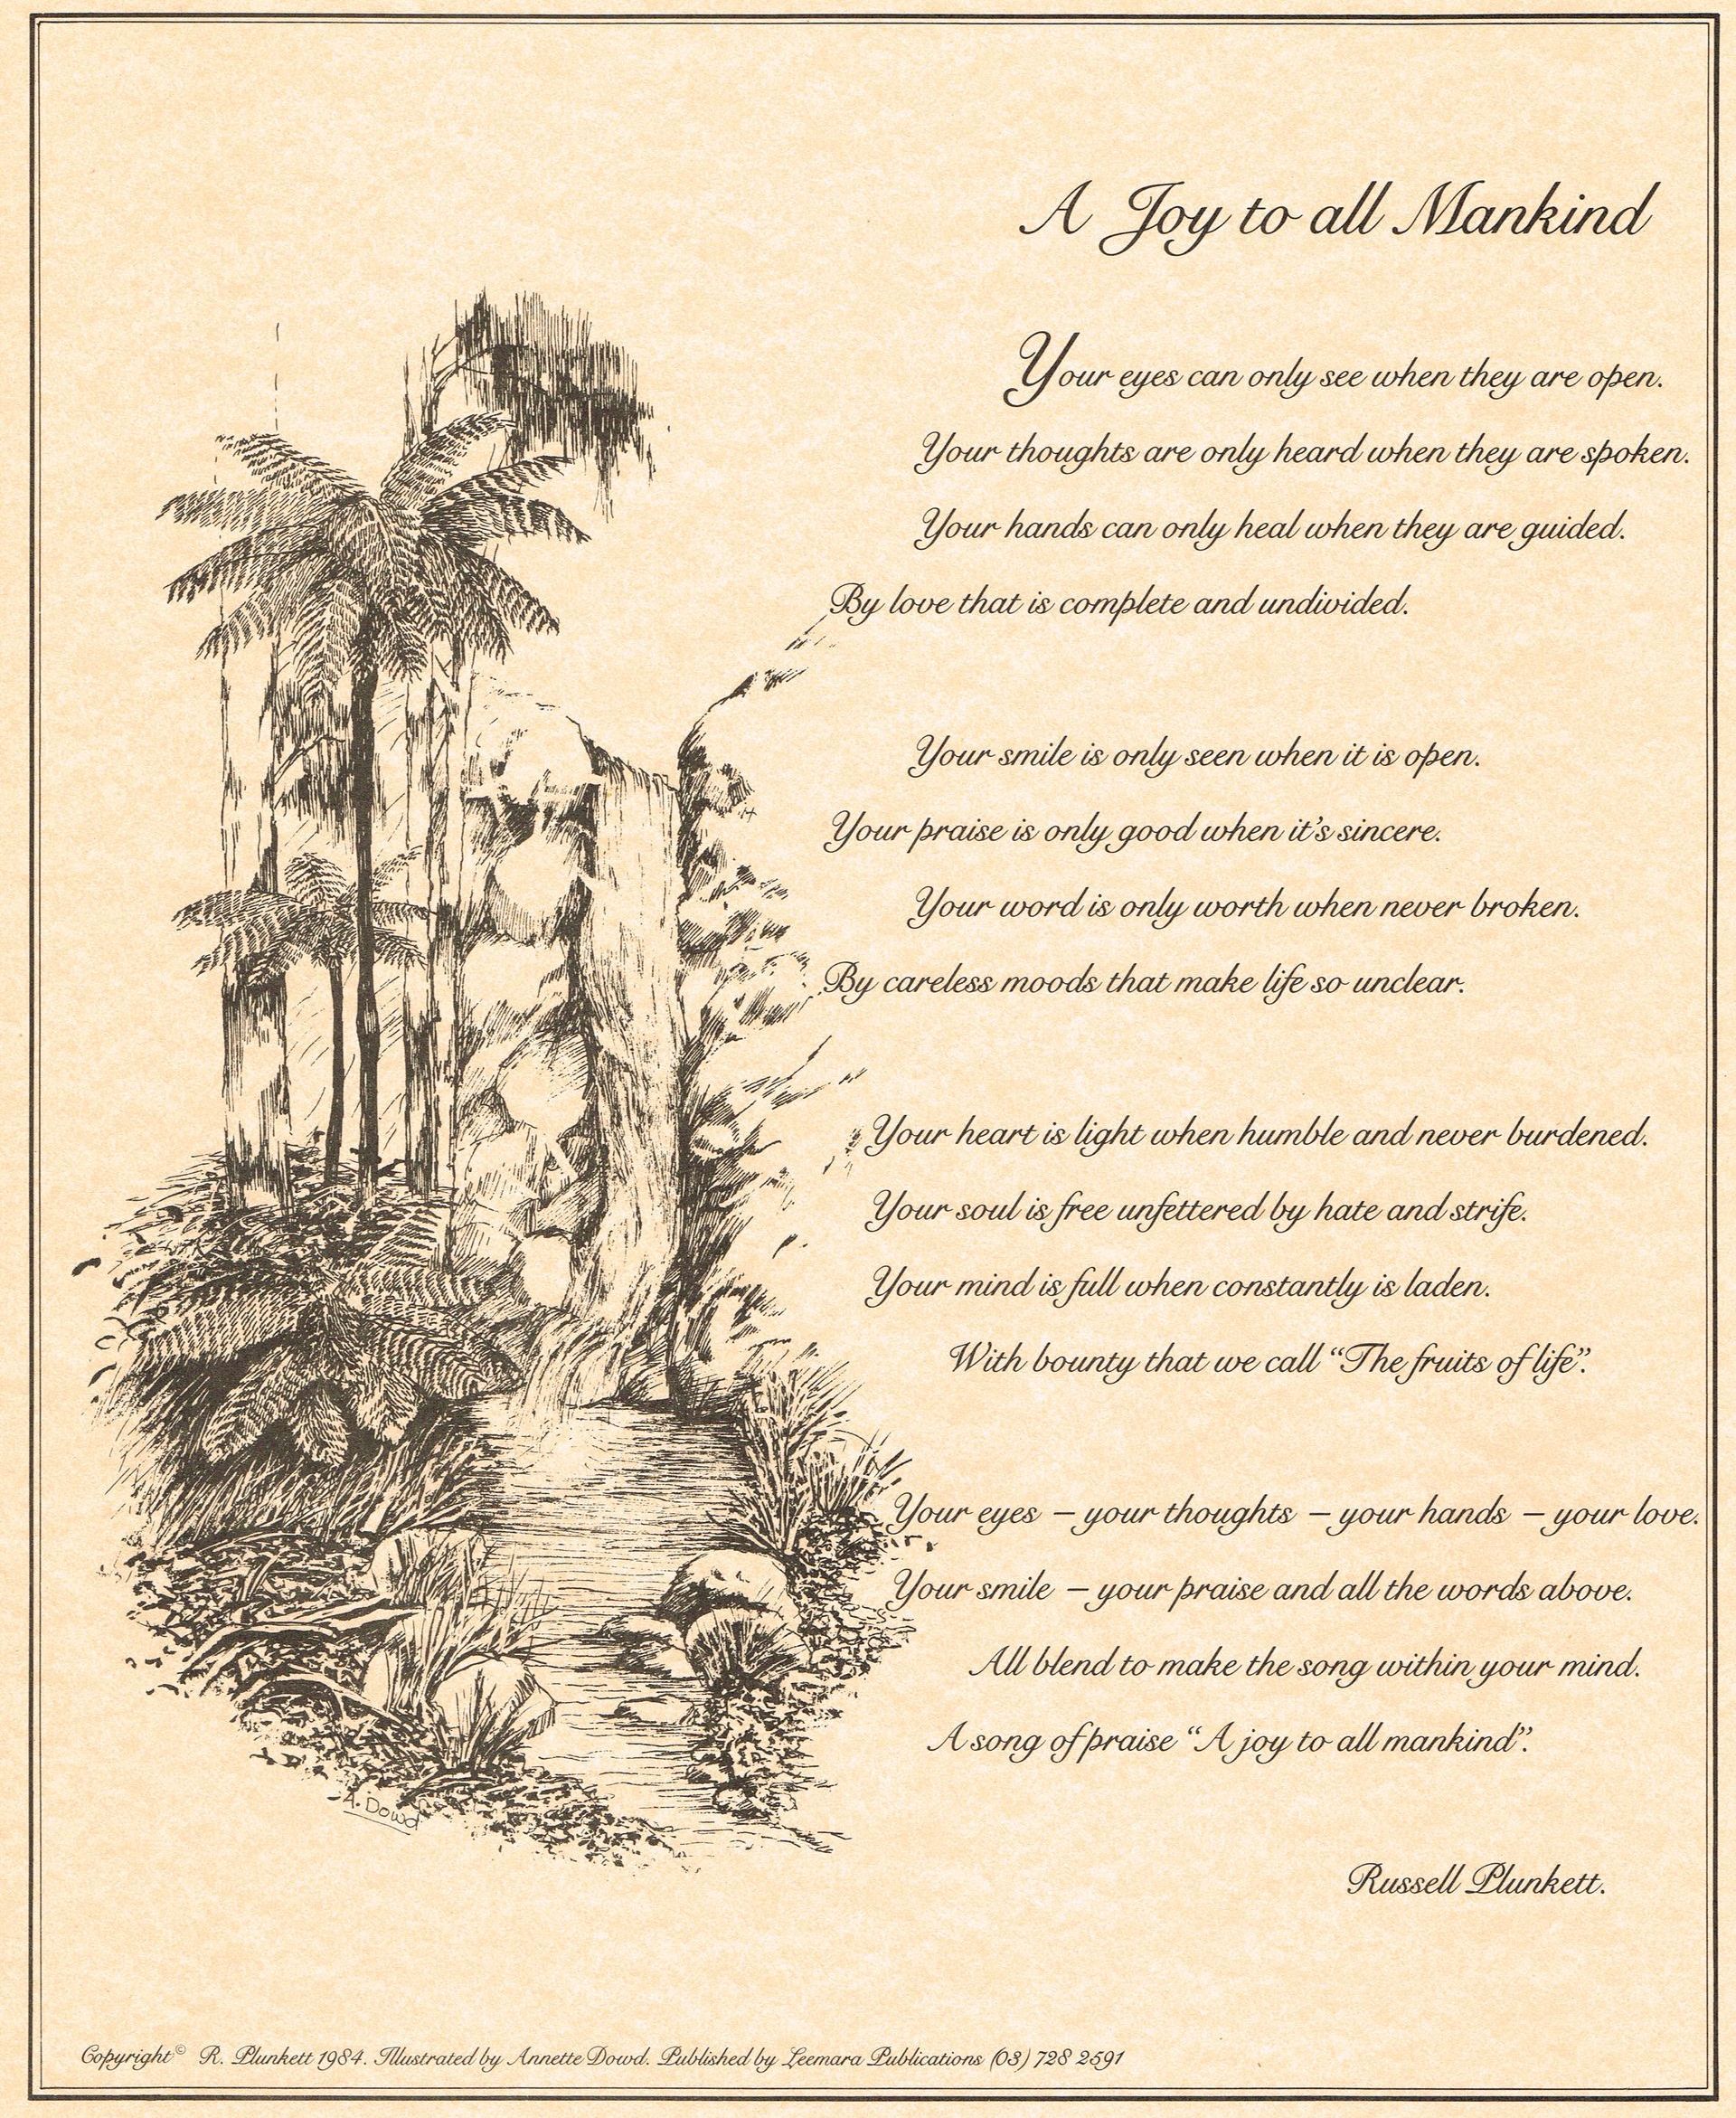 A Joy to all Mankind
Your eyes can only see when they are open.
Your thoughts are only heard when they are spoken.
Your hands can only heal when they are guided.
By love that is complete and undivided.
Your smile is only seen when it is open.
Your praise is only good when it's sincere.
Your word is only worth when never broken.
By careless moods that make life so unclear.
Your heart is light when humble and never burdened.
Your soul is free unfettered by hate and strife.
Your mind is full when constantly is laden.
With bounty that we call “The fruits of life”.
Your eyes – your thoughts – your hands – your love.
Your smile – your praise and all the words above.
All blend to make the song within your mind.
A song of praise “A joy to all mankind”.
A. Dowd
Russell Plunkett.
Copyright© R. Plunkett 1984. Illustrated by Annette Dowd. Published by Leemara Publications (03) 728 2591